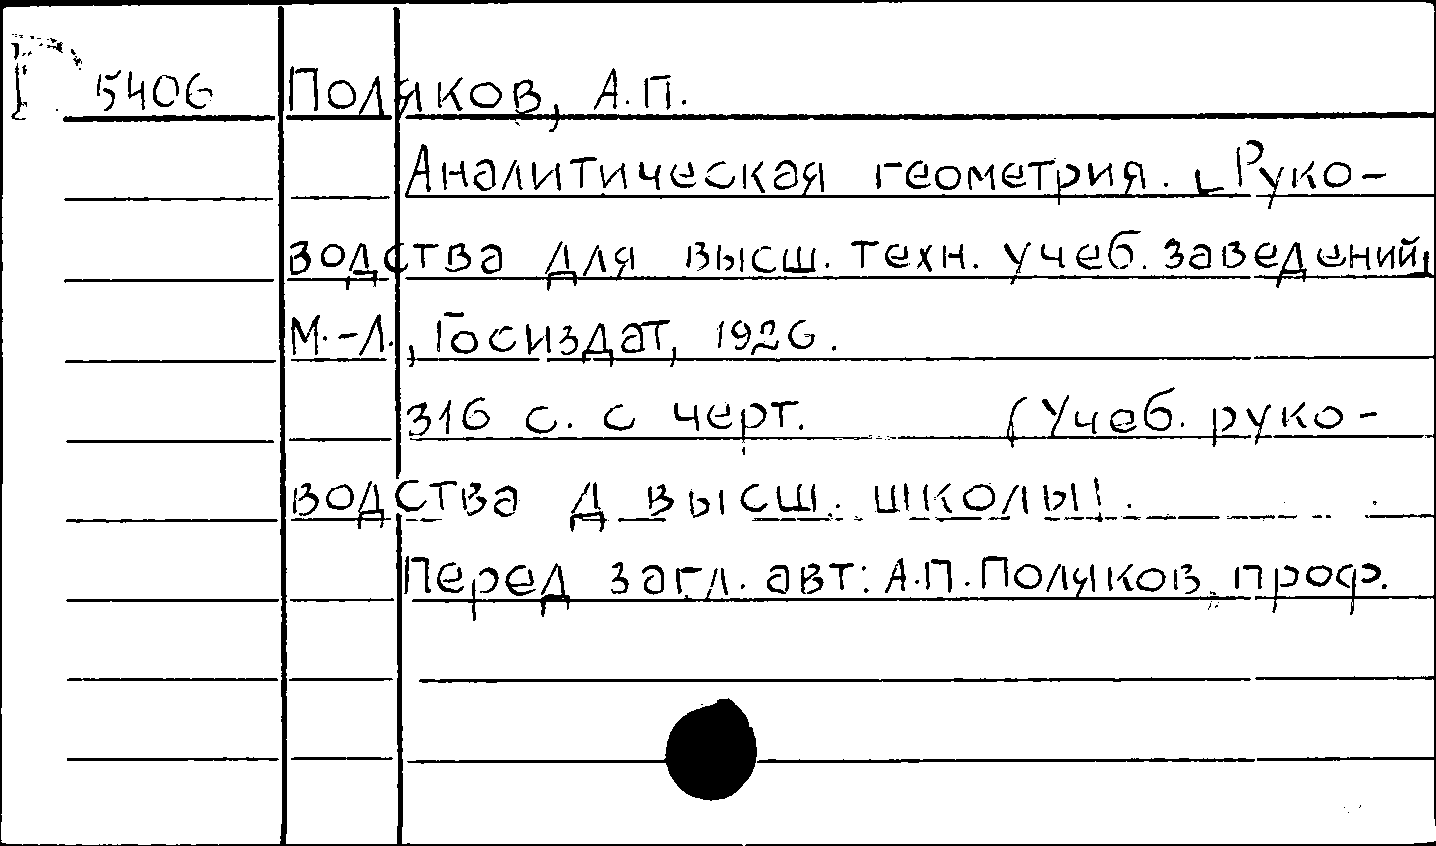 Г 5406 Поляков, А.П.
Аналитическая геометрия. [Руко-
водства для высш. техн. учеб. заведений]
М.-Л., Госиздат, 1926.
316 с. с черт. (Учеб. руко-
водства д высш. школы).
Перед загл. авт: А.П. Поляков, проф.